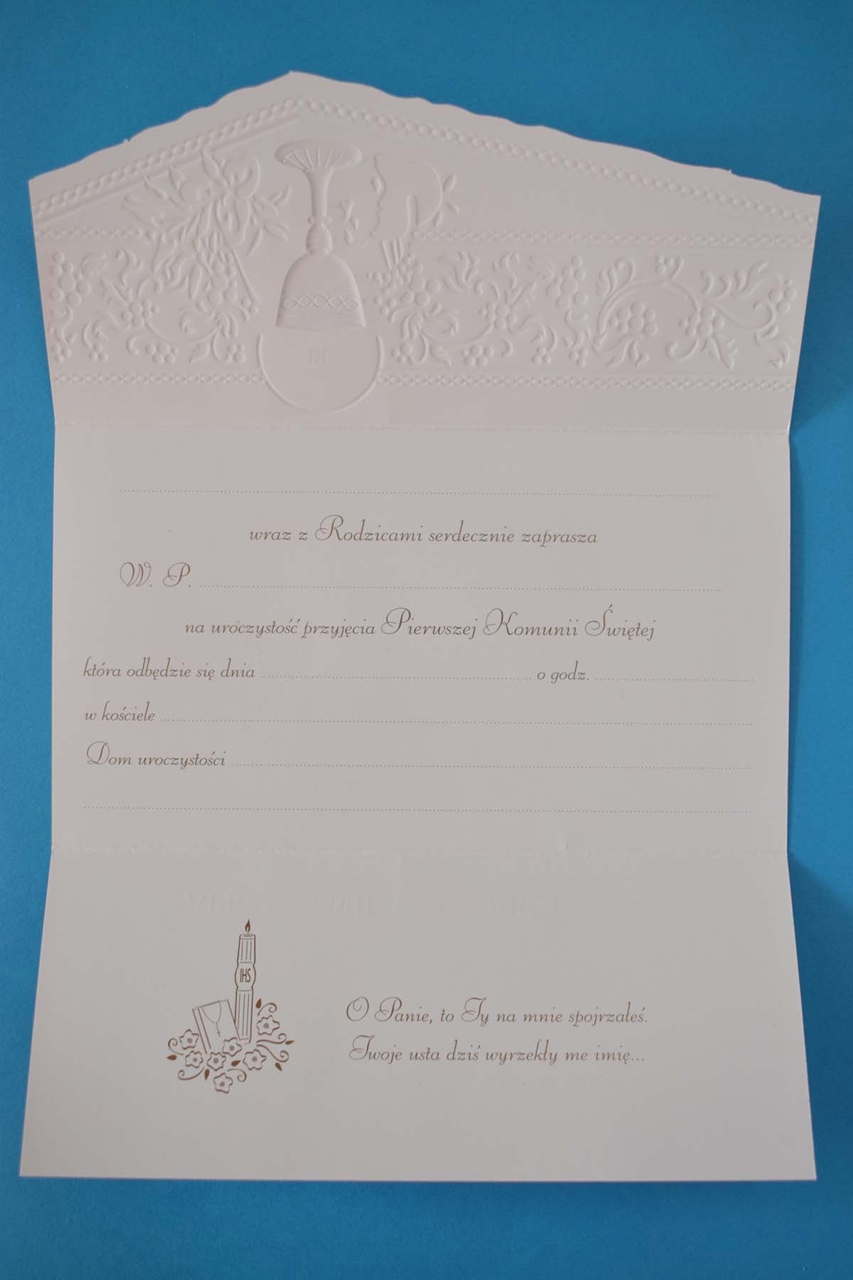 wraz z Rodzicami serdecznie zaprasza
W. P.
na uroczystość przyjęcia Pierwszej Komunii Świętej
która odbędzie się dnia o godz.
w kościele
Dom uroczystości
IHS
O Panie, to Ty na mnie spojrzałeś.
Twoje usta dziś wyrzekły me imię...